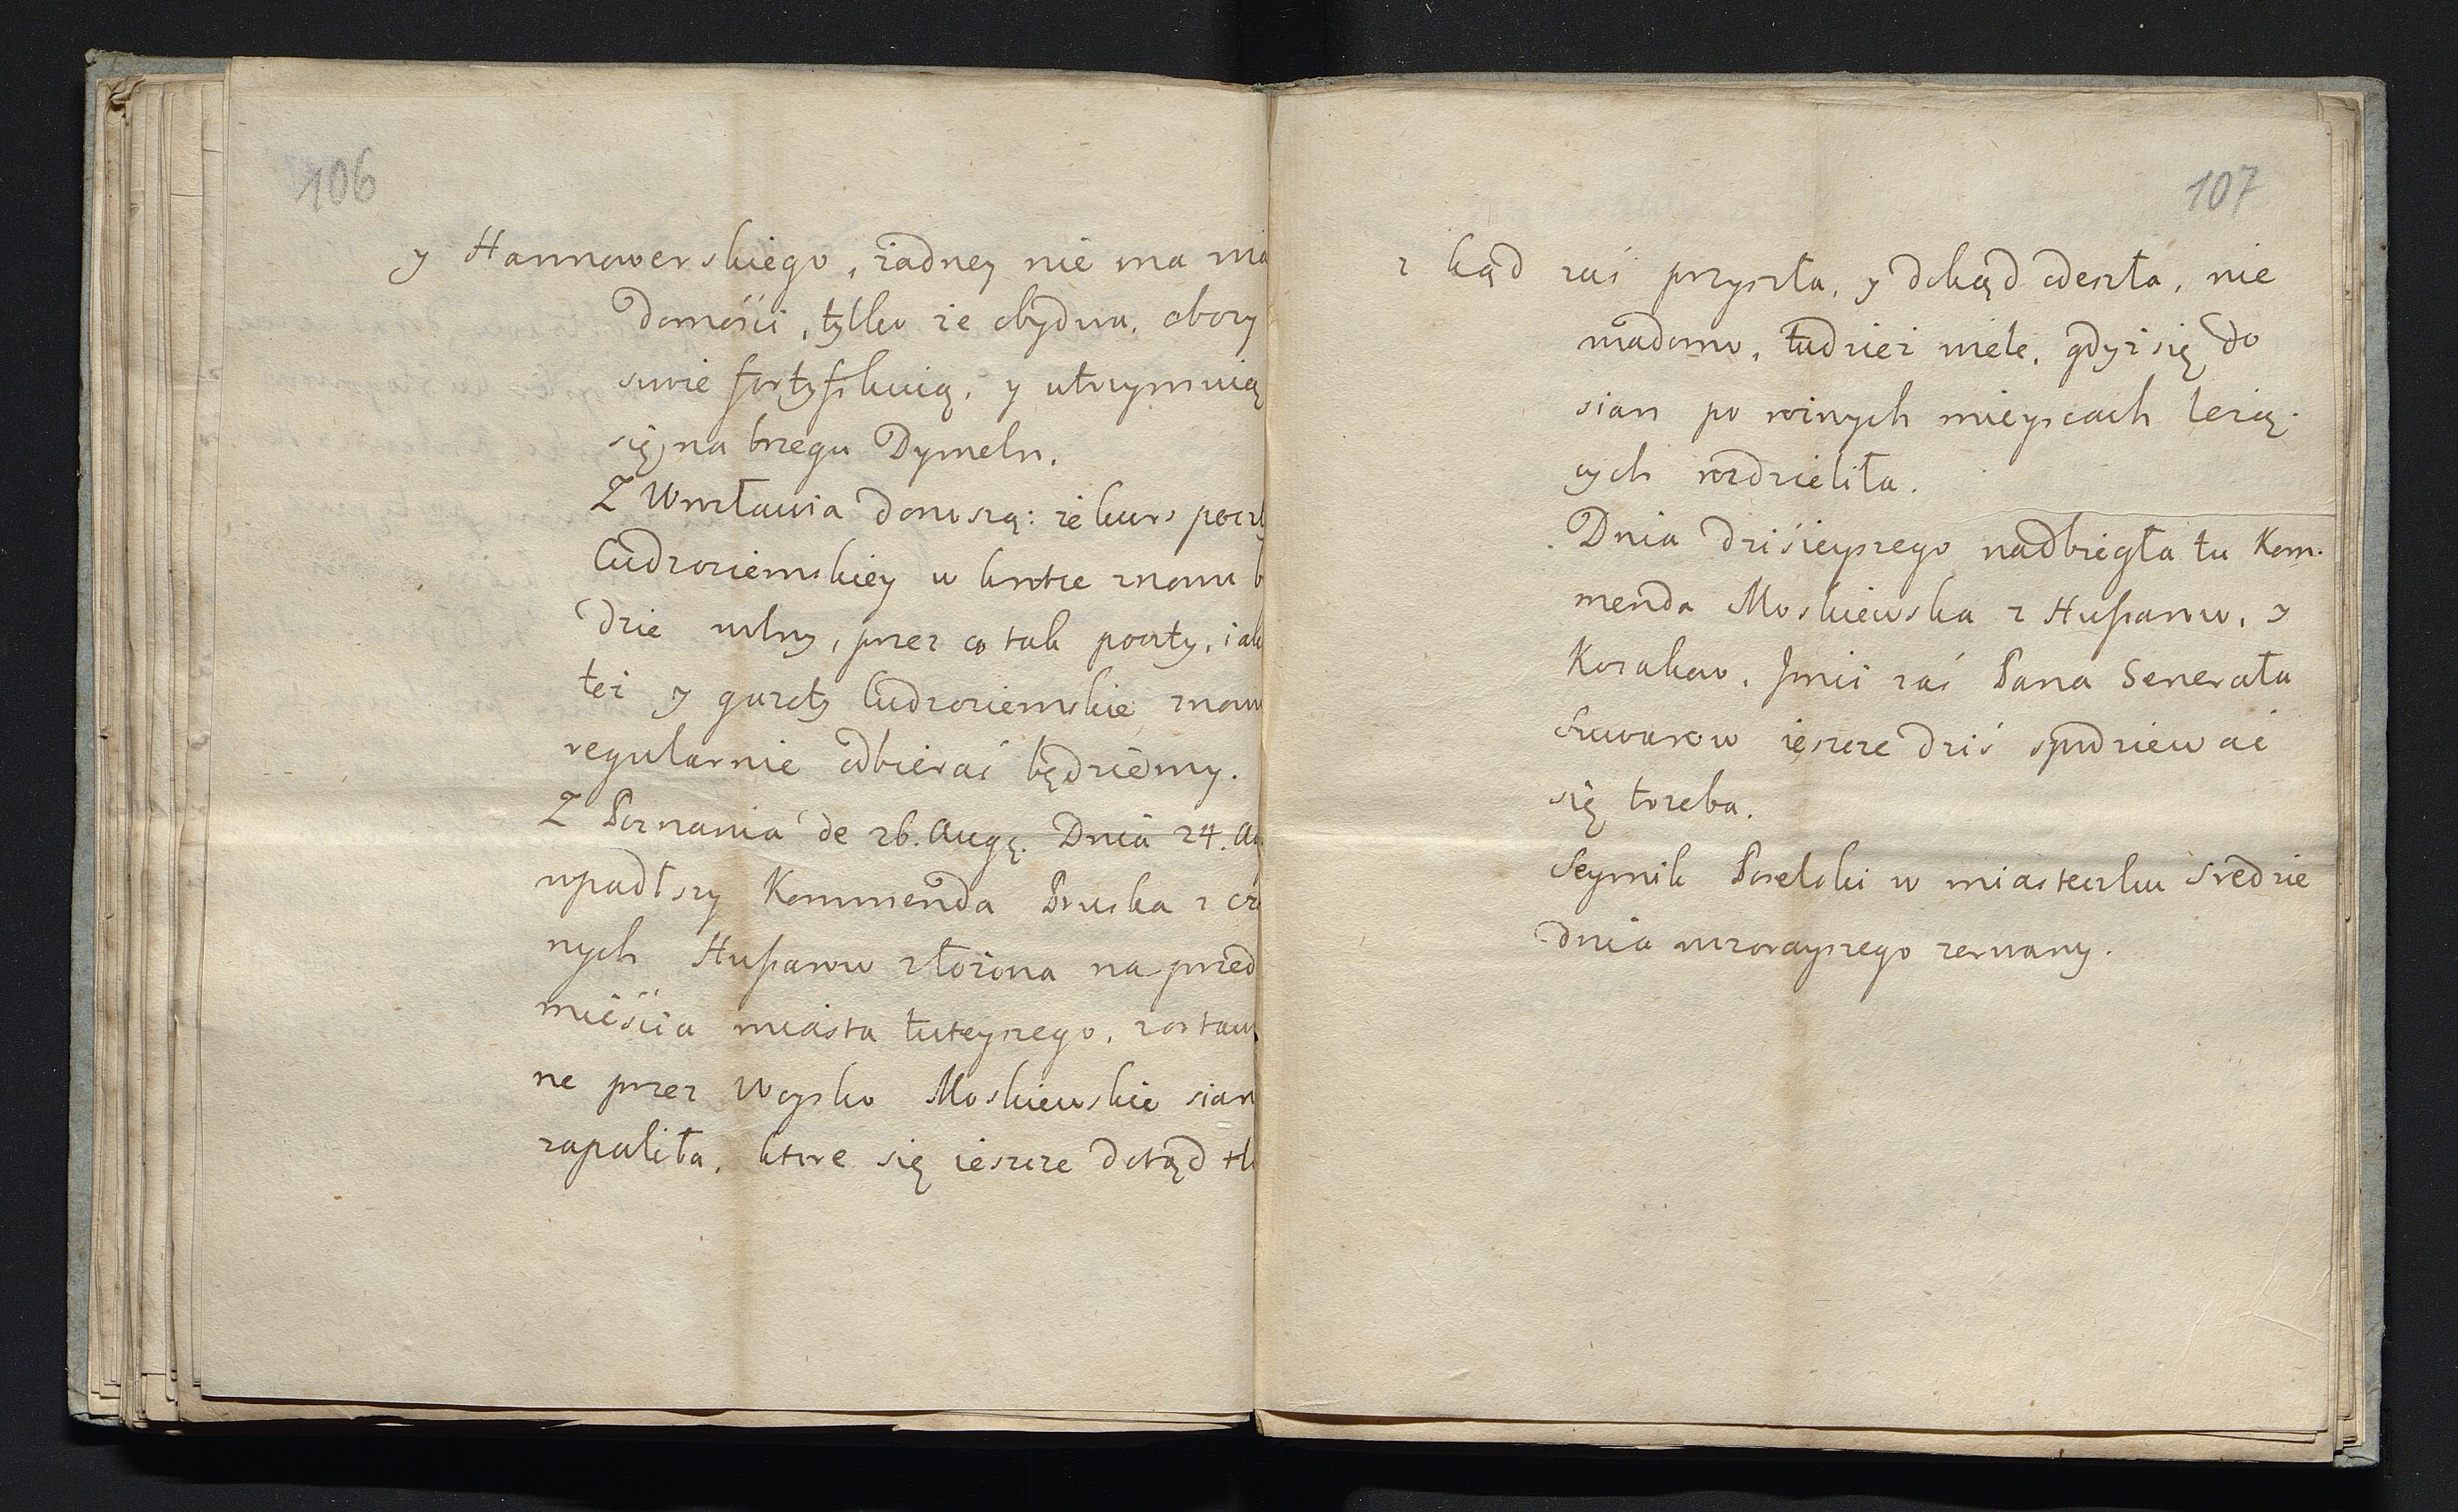 106
y Hannowerskiego, żadney nie ma wia
domości, tylko że obydwa, obozy
swie fortyfikuią, y utrzymuią
się na brzegu Dymeln.
Z Wrocławia donoszą: że kurs poczt
Cudzoziemskiey w krotce znowu b
dzie wolny, przez co tak poczty, iak
też y gazety Cudzoziemskie znow
regularnie odbierać będziemy.
Z Poznania de 26. Aug. Dnia 24. Au
wpadłszy Kommenda Pruska z cza
nych Hussarow złożona na przed
mieścia miasta tuteyszego, zostaw
ne przez Woysko Moskiewskie sian
zapaliła, ktore się ieszcze dotąd tl
107
z kąd zaś przyszła, y dokąd odeszła, nie
wiadomo, tudzież wiele, gdyż się do
sian po roznych mieyscach leżą-
cych rozdzieliła.
Dnia dzisieyszego nadbiegła tu Kom-
menda Moskiewska z Hussarow, y
Kozakow, Jmći zaś Pana Generała
Szuwarow ieszcze dziś spodziewać
się trzeba.
Seymik Poselski w miasteczku Sredzie
dnia wczorayszego zerwany.